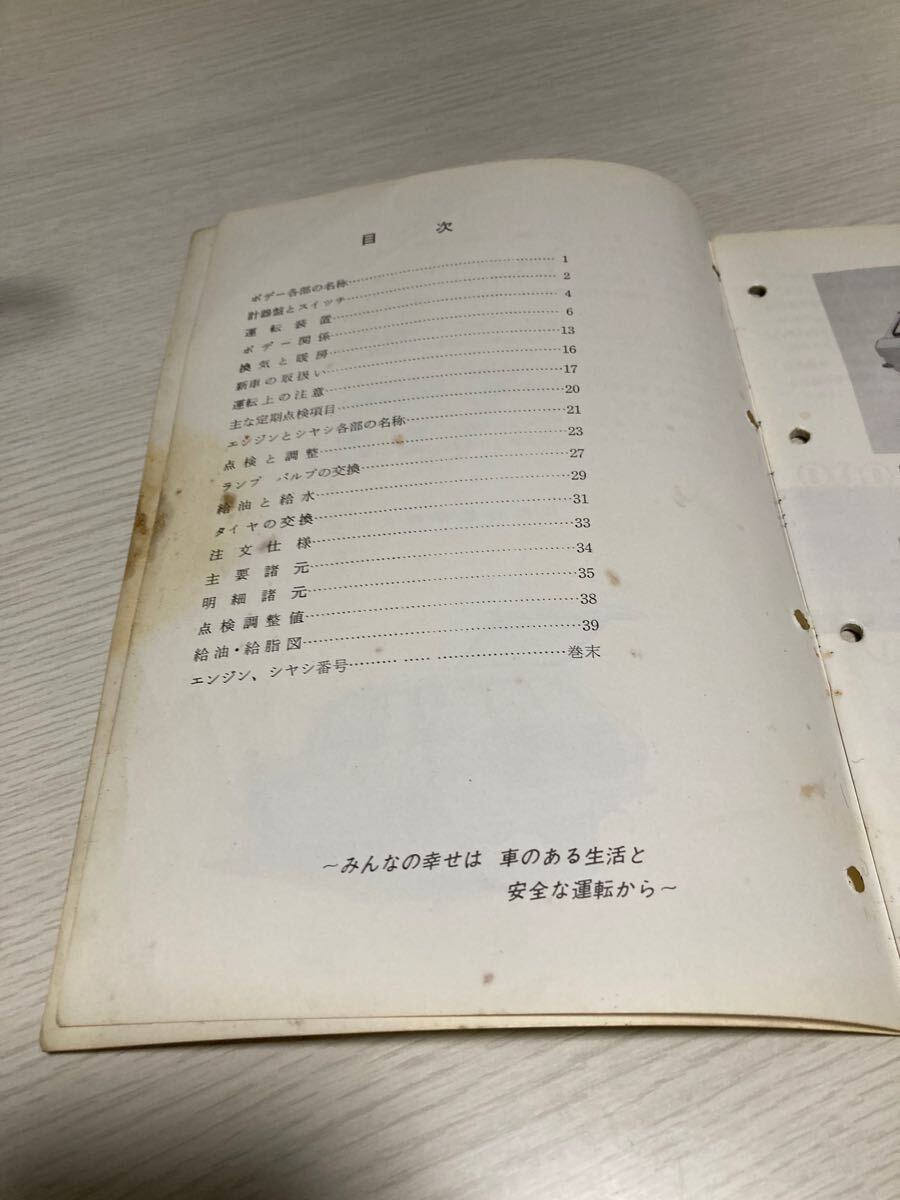 目 次
ボデー各部の名称…………………………1
計器盤とスイッチ…………………………2
運転装置…………………………4
ボデー関係…………………………6
換気と暖房…………………………13
新車の取扱い…………………………16
運転上の注意…………………………17
主な定期点検項目…………………………20
エンジンとシヤシ各部の名称…………………………21
点検と調整…………………………23
ランプ バルブの交換…………………………27
給油と給水…………………………29
タイヤの交換…………………………31
注文仕様…………………………33
主要諸元…………………………34
明細諸元…………………………35
点検調整値…………………………38
給油・給脂図…………………………39
エンジン、シヤシ番号……… ….. …………………巻末
～みんなの幸せは 車のある生活と
安全な運転から～